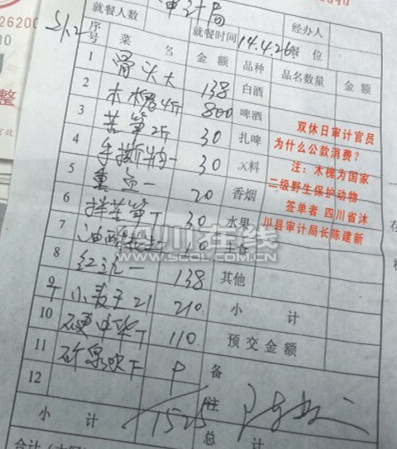 审计局
就餐人数
经办人
就餐时间 14.4.26 餐位
S/12
序号 菜名 金额 品种 品名数量 金额
1 骨头大 138 白酒
2 木槐4斤 800 啤酒
3 苦笋2斤 30 扎啤
4 手撕 一 30 X料
5 一 20 香烟
6 拌苦笋丁 30 水果
7 油酥花生 主食
8 红 一 138 其他
9 小麦子21 210 小计
10 110 预交金额
11 矿泉水下 P 备
12
注
小计 1525
总计
双休日审计官员
为什么公款消费?
注:木槐为国家
二级野生保护动物
签单者 四川省沐
川县审计局长陈建新
四川在线
WWW.SCOL.COM.CN
合计
26200
整